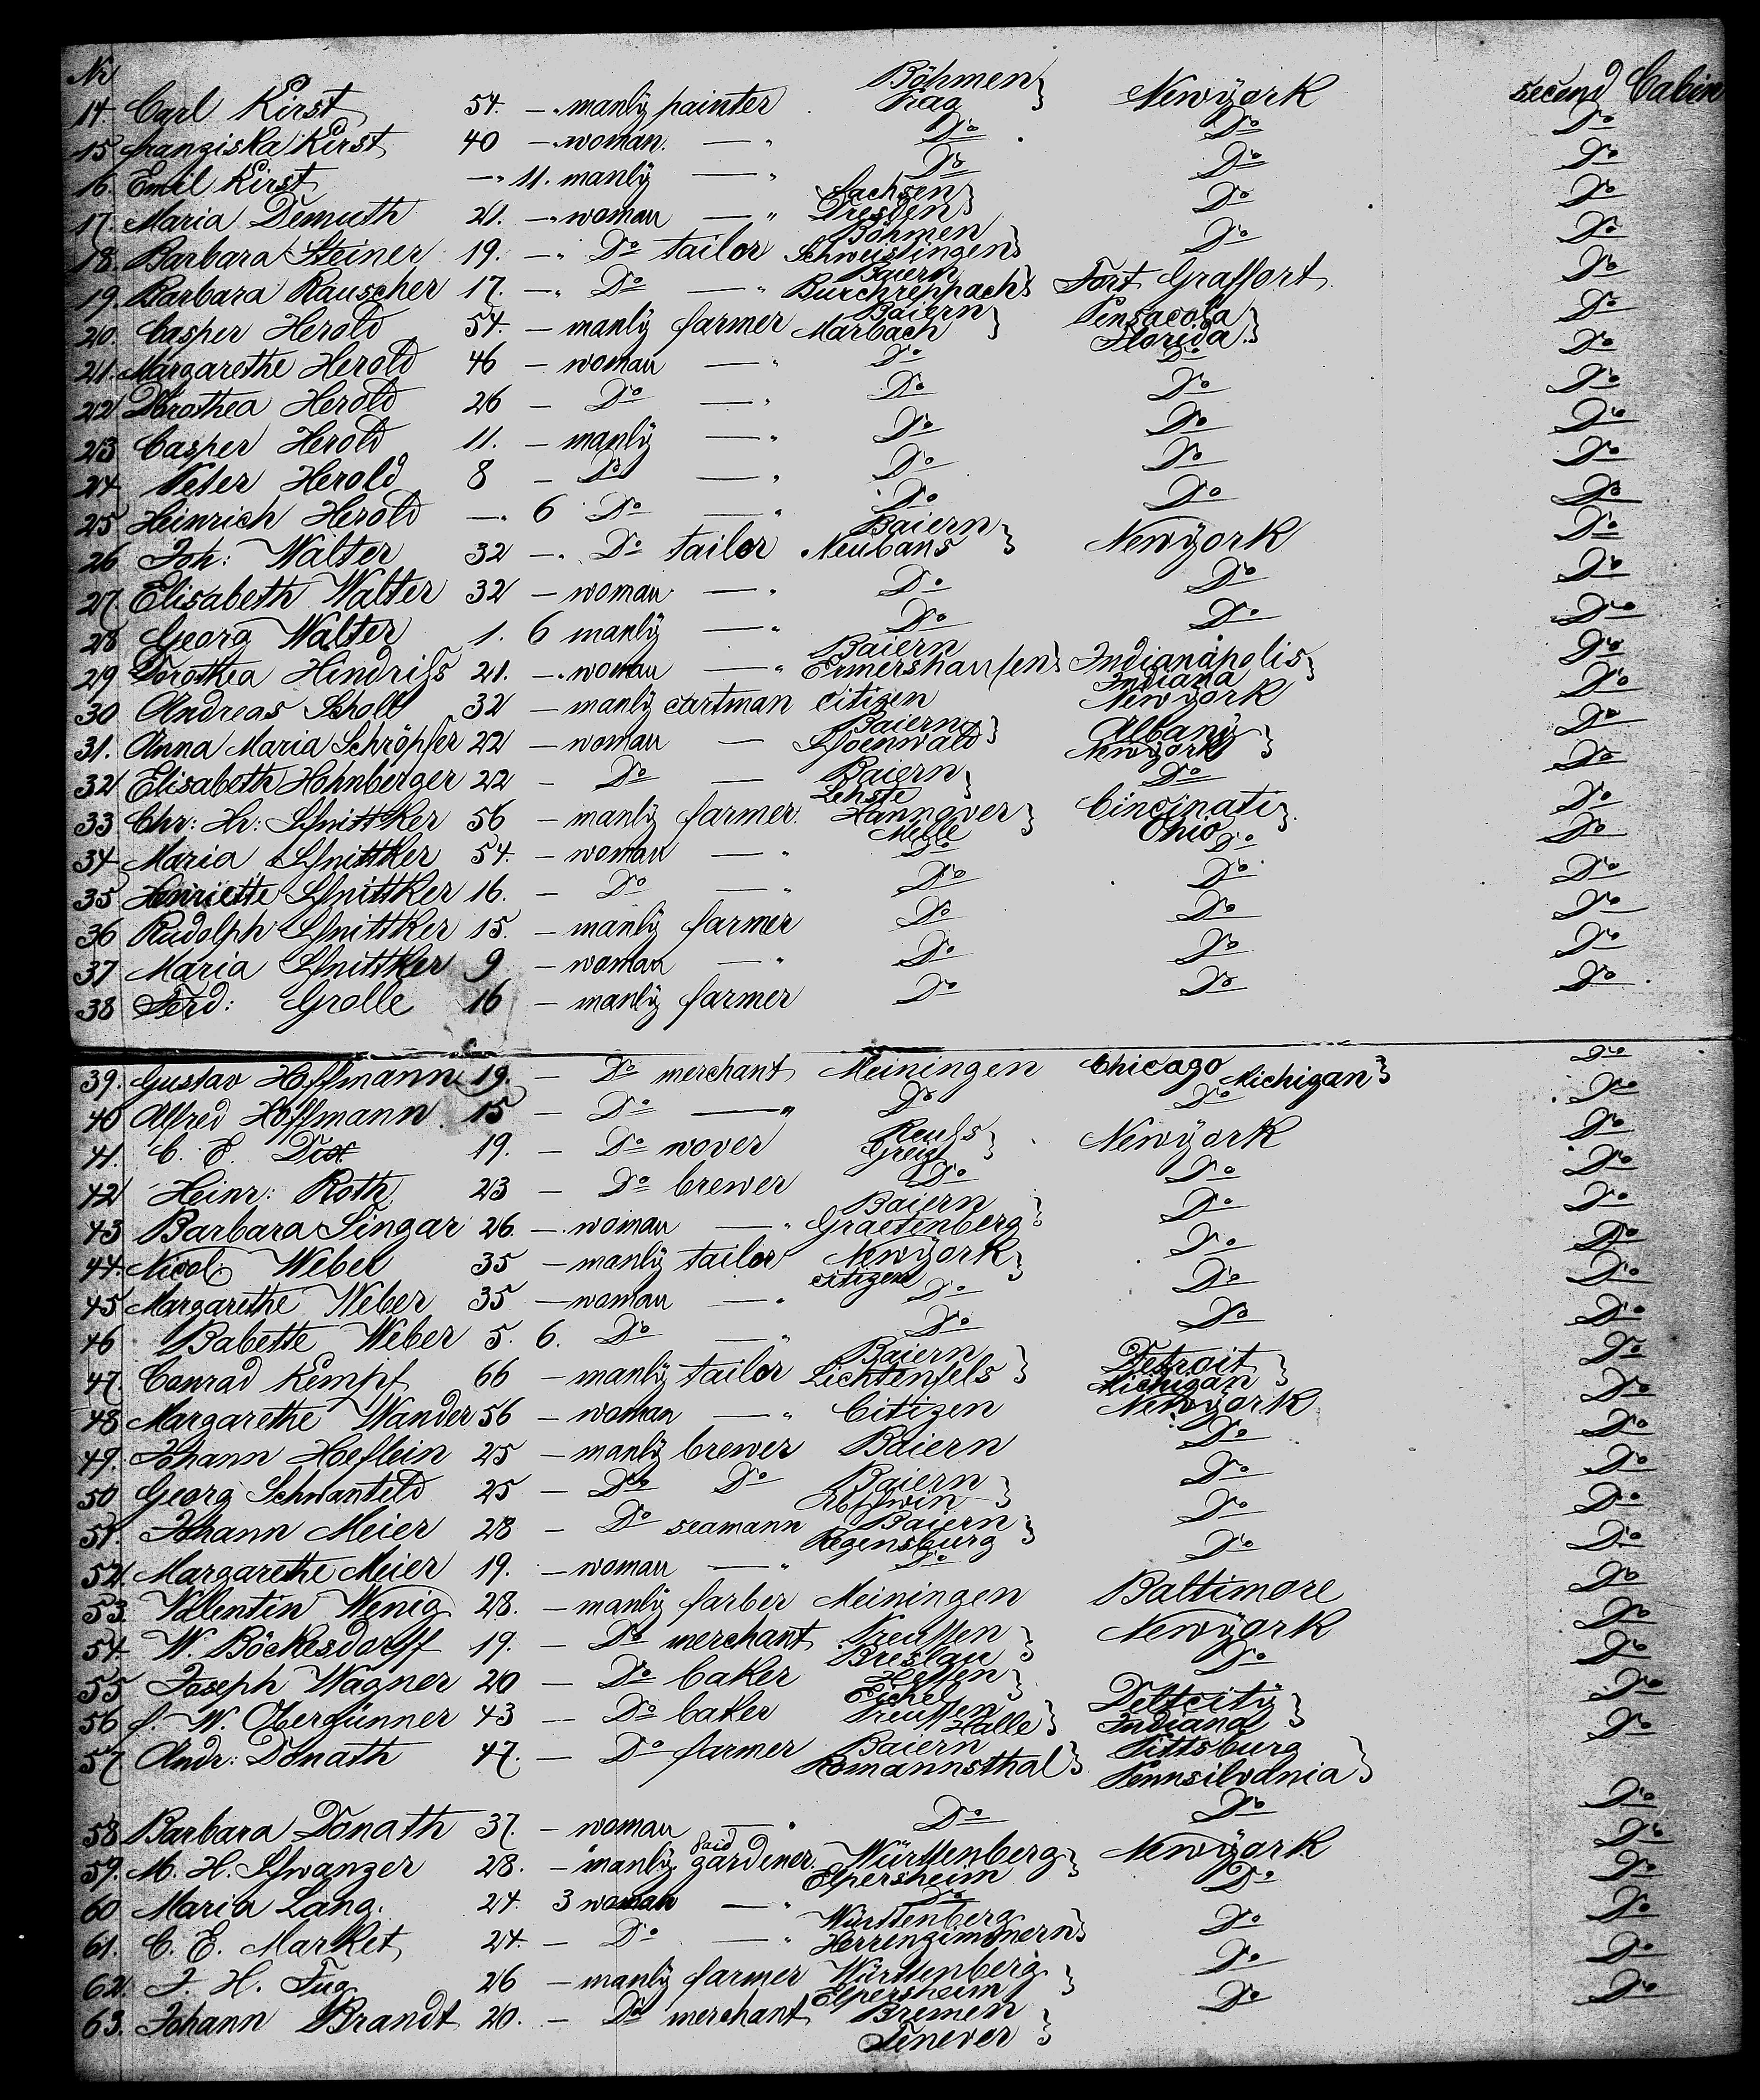 Nr
14. Carl Kirst 54. — " manlÿ painter Böhmen Prag } Newÿork second Cabin
15 Franziska Kirst 40 — " woman. — " Do Do Do
16. Emil Kirst — " 11. manlÿ — " Do Do Do
17. Maria Demuth 21. — " woman — " Sachsen Dresden } Do Do
18. Barbara Steiner 19. — " Do tailor Böhmen Schweislingen } Do Do
19. Barbara Rauscher 17. — " Do — " Baiern Burchreppach } Fort Graffort Do
20. Casper Herold 54. — manlÿ farmer Baiern Marbach } Pensacola Florida } Do
21. Margarethe Herold 46 — woman — " Do Do Do
22 Dorothea Herold 26 — Do — " Do Do Do
23 Casper Herold 11. — manlÿ — " Do Do Do
24 Peter Herold 8 — Do — " Do Do Do
25 Heinrich Herold — " 6 Do — " Do Do Do
26 Joh: Walter 32 — " Do tailor Baiern Neubans } Newÿork Do
27. Elisabeth Walter 32 — woman — " Do Do Do
28 Georg Walter 1. 6 manlÿ — " Do Do Do
29 Dorothea Hindriſs 21. — " woman — " Baiern Ermershauſen } Indianapolis Indiana } Do
30 Andreas Scholl 32 — manlÿ cartman citizen Newÿork Do
31. Anna Maria Schröpfer 22 — woman — Baiern Schoenwald } Albanÿ Newÿork } Do
32 Elisabeth Hohnberger 22 — Do — Baiern Lehste } Do Do
33 Chr: Hr: Schnittker 56 — manlÿ farmer. Hannover Melle } Cincinati Ohio } Do
34 Maria Schnittker 54. — woman — " Do Do Do
35 Henriette Schnittker 16. — Do — " Do Do Do
36 Rudolph Schnittker 15. — manlÿ farmer Do Do Do
37 Maria Schnittker 9 — woman — " Do Do Do
38 Ferd: Grolle 16 — manlÿ farmer Do Do Do
39. Gustav Hoffmann 19. — Do merchant Meiningen Chicago Michigan } Do
40 Alfred Hoffmann. 15 — Do — " Do Do Do
41. C. E. Dix 19. — Do wover Reuſs Greiz } Newÿork Do
42 Heinr: Roth 23 — Do brewer Do Do Do
43 Barbara Singar 26. — " woman — " Baiern Graefenberg } Do Do
44. Nicol: Weber 35 — manlÿ tailor Newÿork citizen } Do Do
45 Margarethe Weber 35 — woman — " Do Do Do
46 Babette Weber 5. 6. Do — " Do Do Do
47. Conrad Kempf 66 — manlÿ tailor Baiern Lichtenfels } Detroit Michigan } Do
48 Margarethe Wander 56 — woman — " Citizen Newÿork Do
49. Johann Hoeflein 25 — manlÿ brewer Baiern Do Do
50 Georg Schwanfeld 25 — Do Do Baiern } Do Do
51. Johann Meier 28 — Do seamann Baiern Regensburg } Do Do
52. Margarethe Meier 19. — woman — " Do Do Do
53. Vallentin Wenig 28. — manlÿ farber Meiningen Baltimore Do
54. W. Böckesdorff 19. — Do merchant Preuſsen Breslau } Newÿork Do
55 Joseph Wagner 20 — Do baker Heſsen Eichel } Do Do
56 f. W. Obergünner 43 — Do baker Preuſsen Halle } Deltcitÿ Indiana } Do
57 Andr: Donath 47. — Do farmer Baiern Romannsthal } Pittsburg Pennsilvania } Do
58 Barbara Donath 37. — woman — " Do Do Do
59. M. H. Schwanzer 28. — manlÿ said gardener Württenberg Elpersheim } Newÿork Do
60 Maria Lang. 24. 3 woman — " Do Do Do
61. C. E. Market 24. — Do — " Württenberg Herrenzimmern } Do Do
62. J. H. Fug 26 — manlÿ farmer Württenberg Elpersheim } Do Do
63. Johann Brandt 20. — Do merchant Bremen Tenever } Do Do